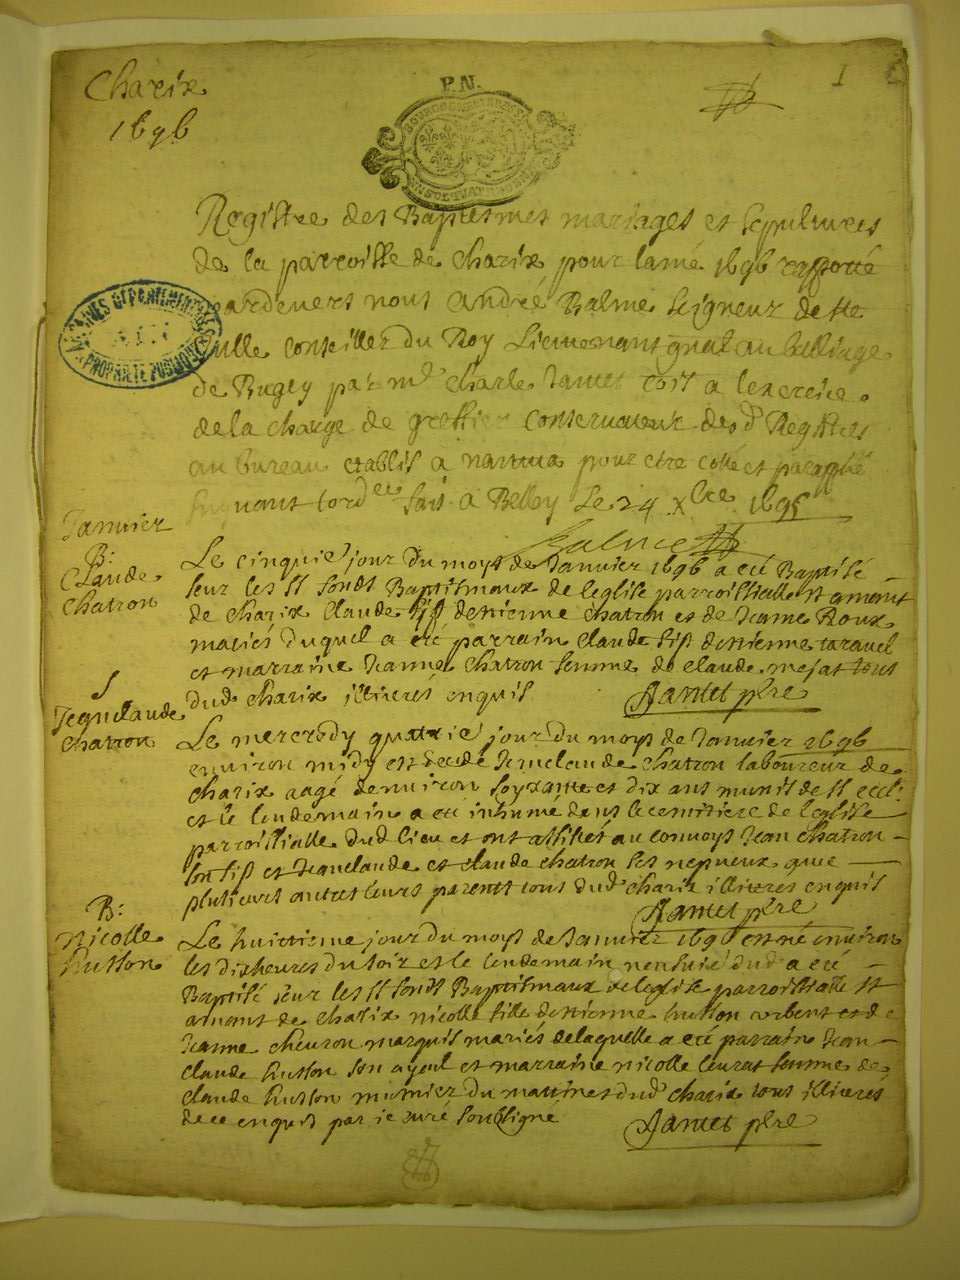 Charix
1696
P.N.
1
Registre des Baptesmes mariages et sepultures
de la parroisse de Charix pour lanné 1696 rapporté
pardevers nous André Balme seigneur de ste
Iulle conseiller du Roy Lieutenant gnal au balliage
de Bugey par me Charle Iantet à lexercice
de la charge de greffier conservateur desd Registres
au bureau establis a nantua pour etre cotté et paraphé
suivant lordce fait a Belley Le 24 Xbre 1695
Balme
Ianuier
B:
Claude
Chatron
Le cinquie jour du moys de Ianuier 1696 a eté Baptisé
seur les st fonds Baptismaux de leglise parroissialle st amant
de Charix Claude fils destienne Chatron et de Ieanne Roux
mariés duquel a eté parrain Claude fils destienne
et marraine Ieanne Chatron femme de Claude tous
dud Charix illiterés enquis
Iantet ptre
S
Ieanclaude
Chatron
Le mercredy quatrie jour du moys de Ianuier 1696
environ midy est decedé Ieanclaude Chatron laboureur de
Charix aagé denuiron soyxante et dix ans munit de st eccl:
et le lendemain a eté inhumé dans le cemitiere de leglise
parroissialle dud lieu et ont assistés au convoys Iean Chatron
son fils et Ieanclaude et Claude Chatron ses nepueux que
plusieurs autres leurs parents tous dud Charix illiteres enquis
Iantet ptre
B:
Nicolle
husson
Le huictieme jour du moys de Ianuier 1696 est né environ
les dix heures du soir et le lendemain neufuie dud a eté
Baptisé seur les st fonds Baptismaux de leglise parroissialle st
amant de Charix nicolle fille destienne husson et de
Ieanne marquis mariés de laquelle a eté parrain Iean
claude husson son ayeul et marraine nicolle femme de
Claude husson munier du dud Charix tous illiteres
de ce enquis par ie curé soubsigne
Iantet ptre